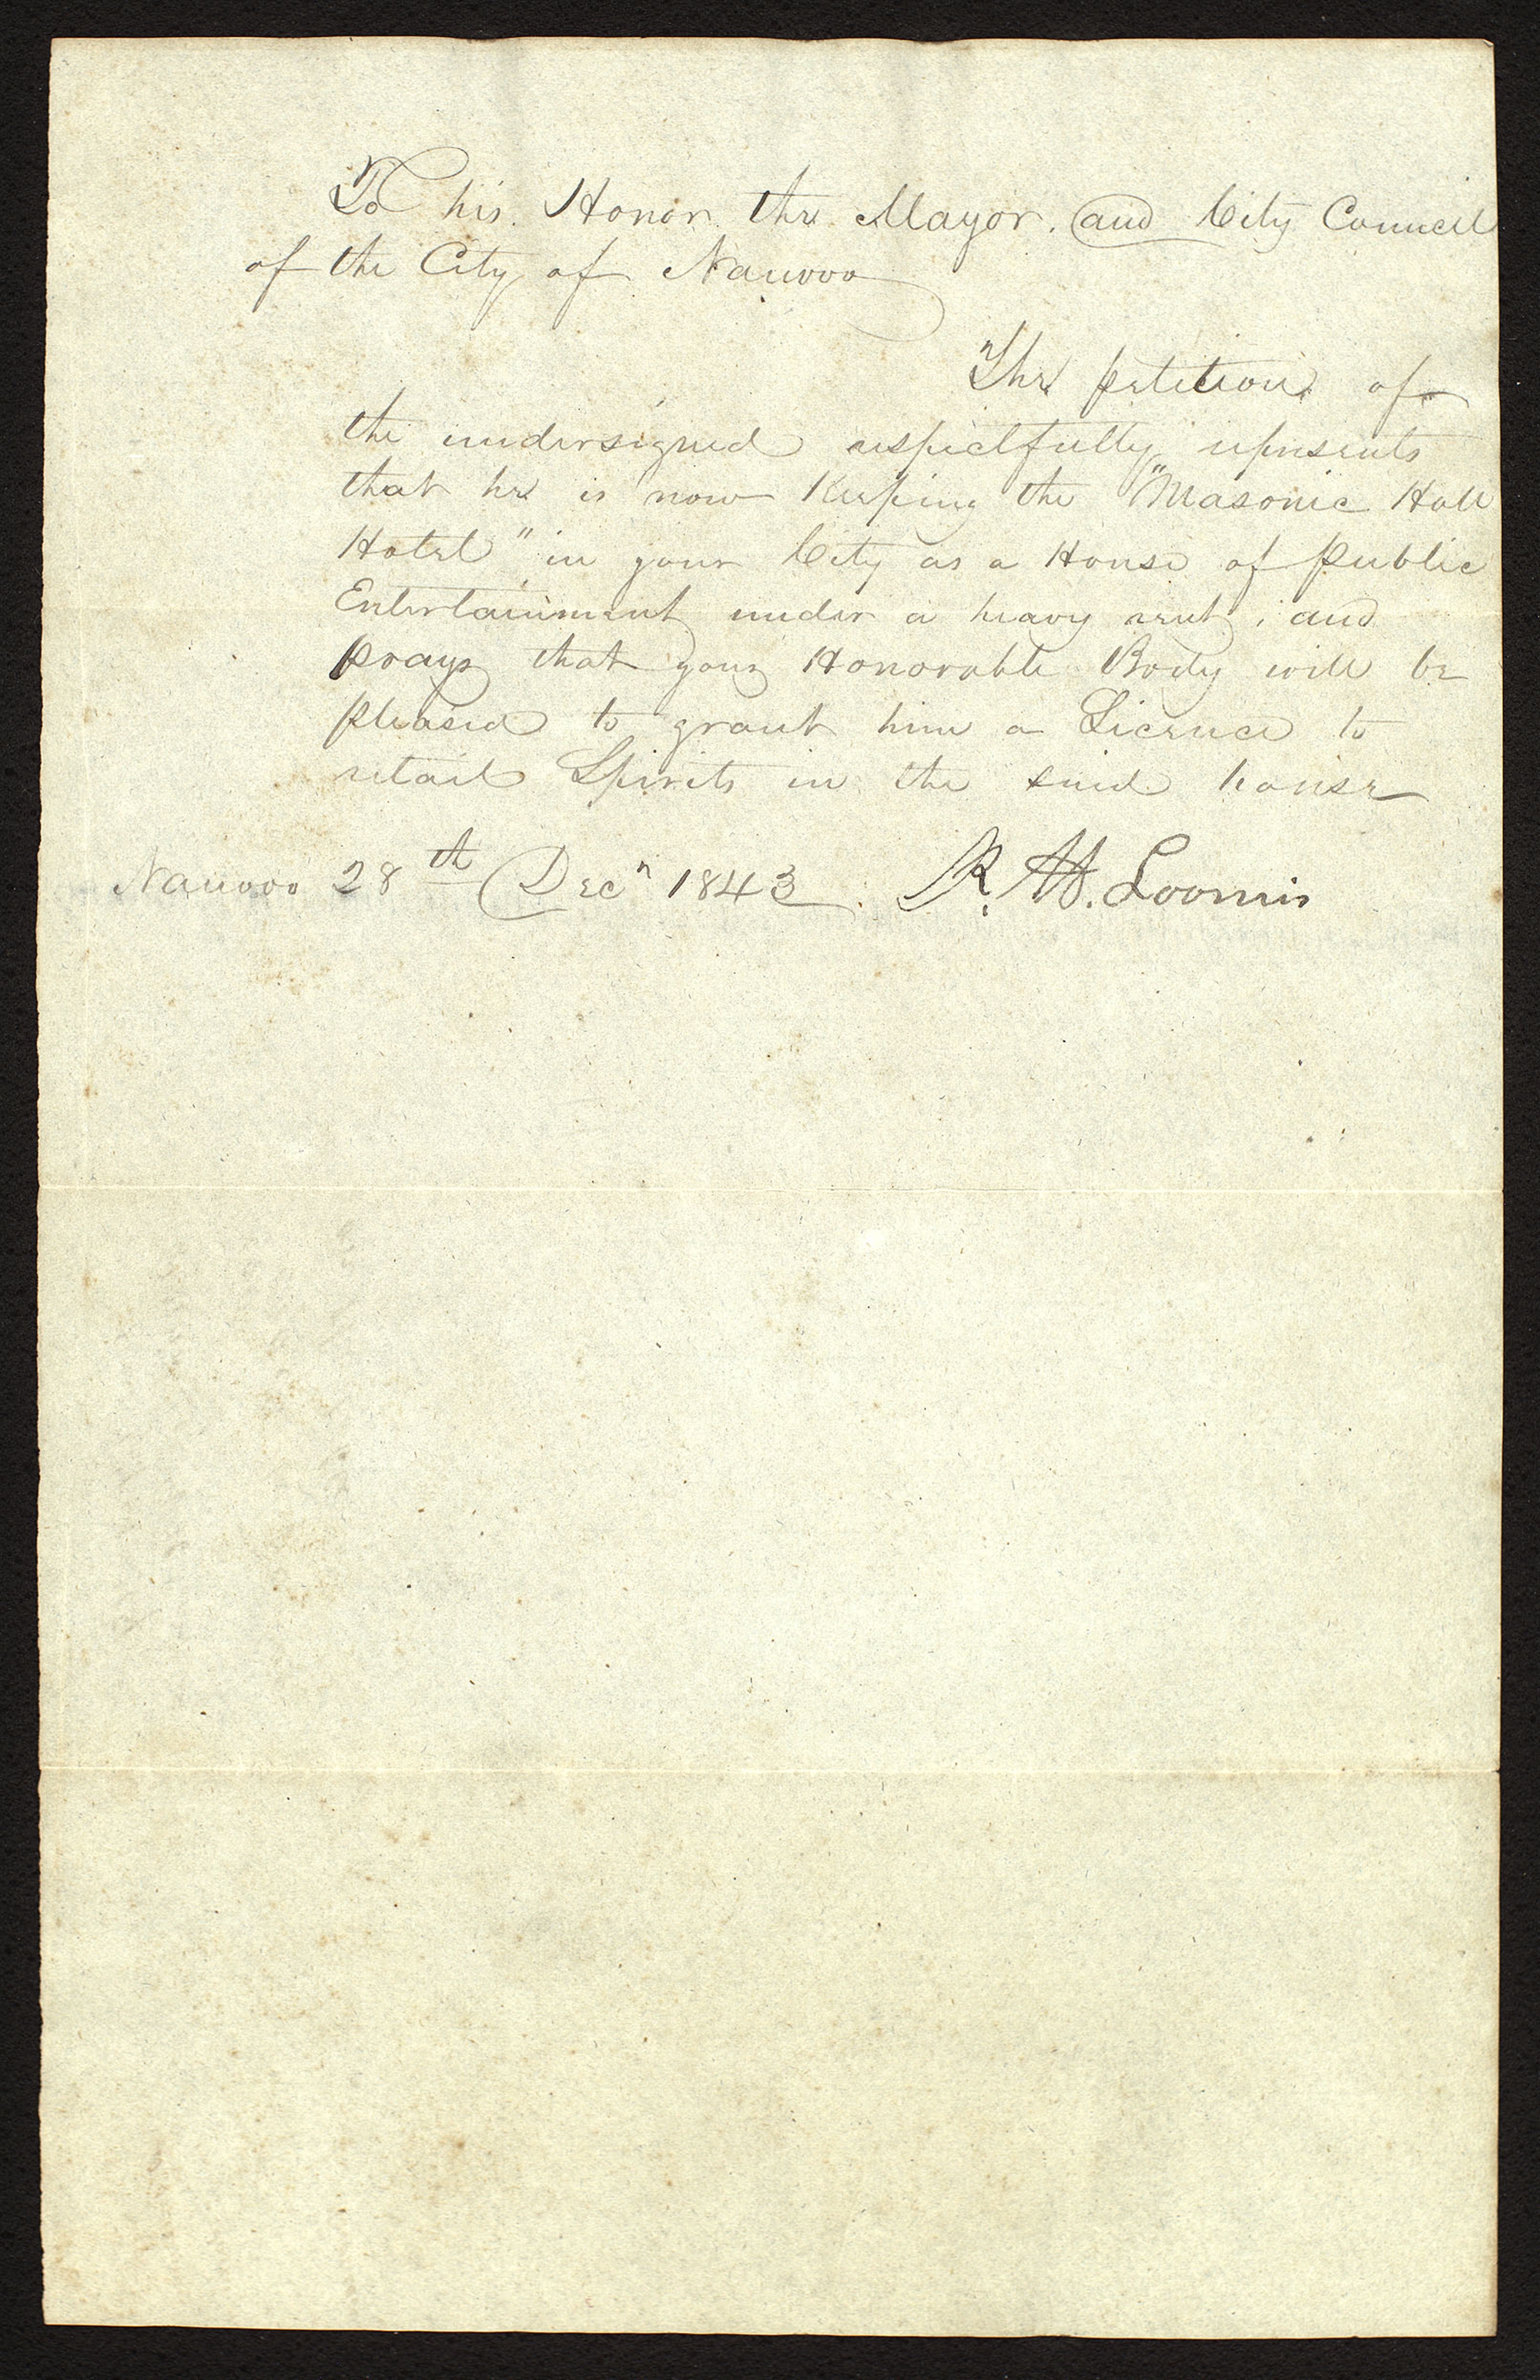 To his Honor the Mayor. and City Council
of the City of Nauvoo
The petition of
the undersigned respectfully represents
that he is now Keeping the "Masonic Hall
Hotel" in your City as a House of Public
Entertainment under a heavy rent; and
Prays that your Honorable Body will be
Pleased to grant him a Licence to
retail Spirits in the said house
Nauvoo 28th Decr 1843. R. W. Loomis